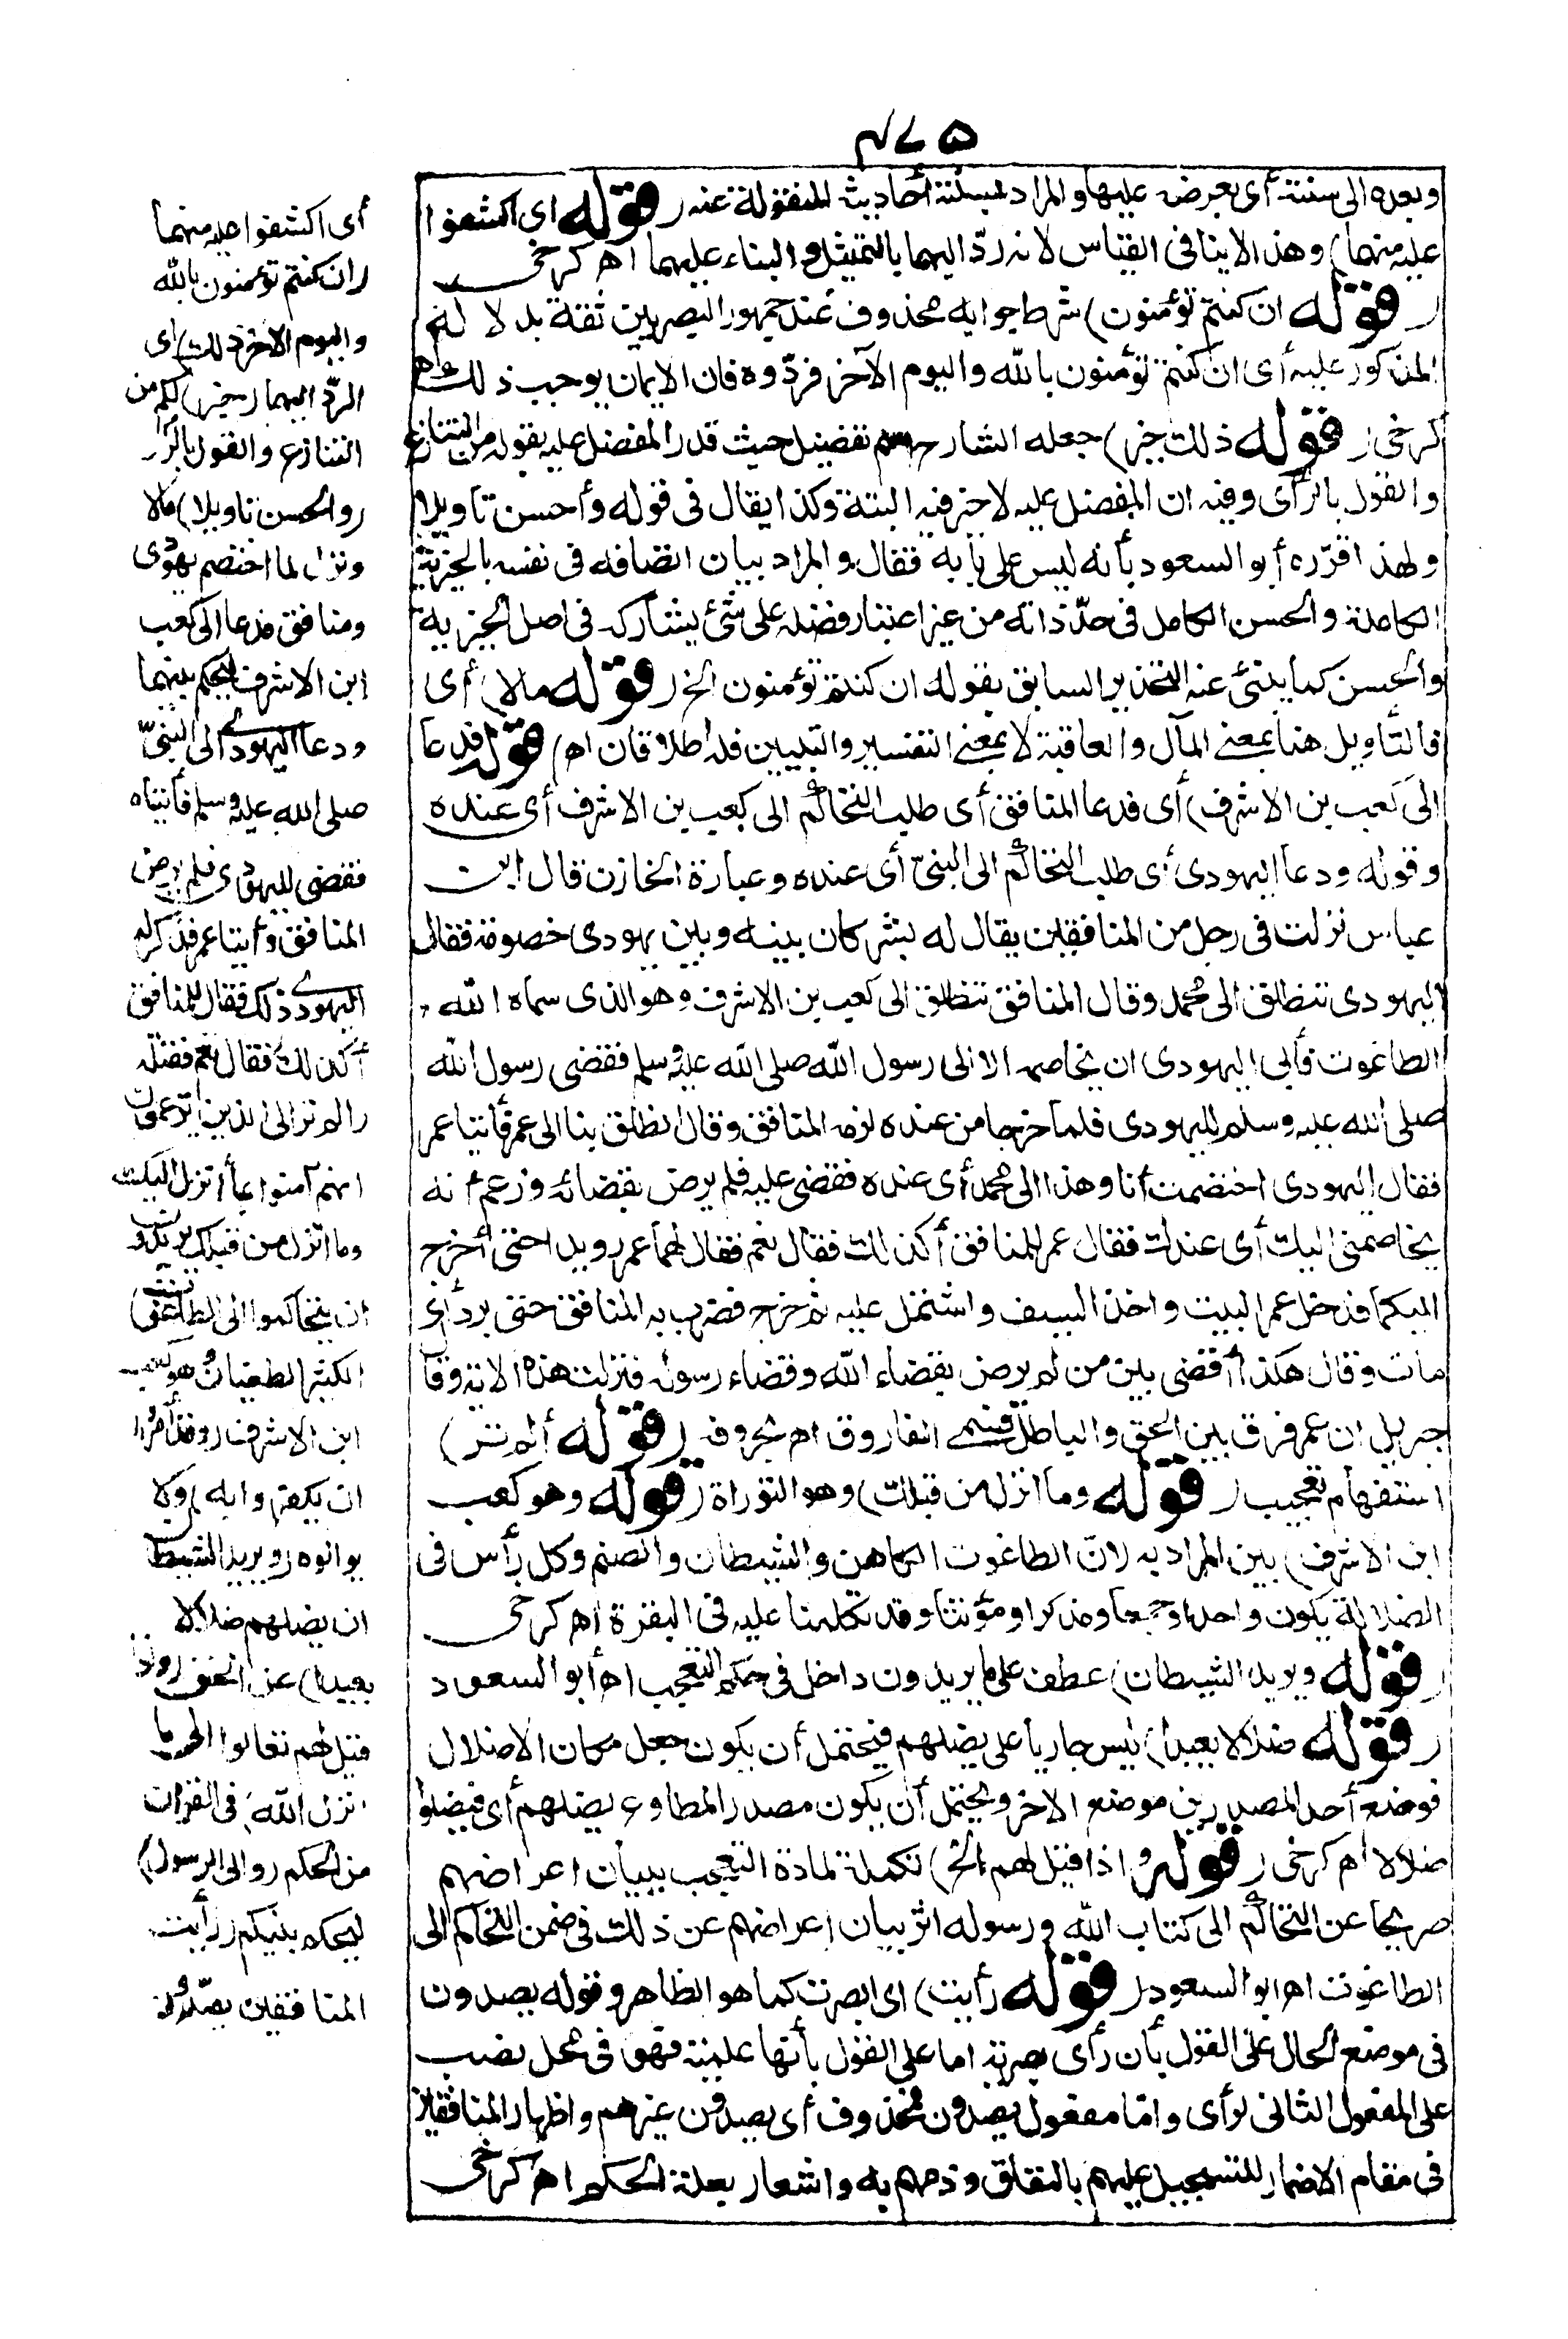 ٤٧٥
وبعده الى سنته أى يعرض عليها والمراد بسنته أحاديثه المنقولة عنه (قوله اى اكشفوا
عليه منهما) وهذا لا ينافى القياس لانه ردّ اليهما بالتمثيل والبناء عليهما اه كرخى
(قوله ان كنتم تؤمنون) شرط جوابه محذوف عند جمهور البصريين ثقة بدلالة
المذكور عليه أى ان كنتم تؤمنون بالله واليوم الآخر فردّوه فان الايمان يوجب ذلك اه
كرخى (قوله ذلك خير) جعله الشارح اسم تفضيل حيث قدر المفضل عليه بقوله من التنازع
والقول بالرأى وفيه ان المفضل عليه لا خير فيه البتة وكذا يقال فى قوله وأحسن تأويلا
ولهذا قرّره أبو السعود بأنه ليس على بابه فقال والمراد بيان اتصافه فى نفسه بالخيرية
الكاملة والحسن الكامل فى حدّ ذاته من غير اعتبار فضله على شئ يشاركه فى اصل الخيرية
والحسن كما ينبئ عنه التحذير السابق بقوله ان كنتم تؤمنون الخ (قوله مآلا) أى
فالتأويل هنا بمعنى المآل والعاقبة لا بمعنى التفسير والتبيين فله اطلاقان اه (قوله فدعا
الى كعب بن الاشرف) أى فدعا المنافق أى طلب التحاكم الى كعب بن الاشرف أى عنده
وقوله ودعا اليهودى أى طلب التحاكم الى النبىّ أى عنده وعبارة الخازن قال ابن
عباس نزلت فى رجل من المنافقين يقال له بشر كان بينه وبين يهودى خصومة فقال
اليهودى ننطلق الى محمد وقال المنافق ننطلق الى كعب بن الاشرف وهو الذى سماه الله
الطاغوت فأبى اليهودى ان يخاصمه الا الى رسول الله صلى الله عليه وسلم فقضى رسول الله
صلى الله عليه وسلم لليهودى فلما خرجا من عنده لزمه المنافق وقال انطلق بنا الى عمر فأتيا عمر
فقال اليهودى اختصمت أنا وهذا الى محمد أى عنده فقضى عليه فلم يرض بقضائه وزعم أنه
يخاصمنى اليك أى عندك فقال عمر للمنافق أكذلك فقال نعم فقال لهما عمر رويدا حتى أخرج
اليكما فدخل عمر البيت واخذ السيف واشتمل عليه ثم خرج فضرب به المنافق حتى برد أى
مات وقال هكذا أقضى بين من لم يرض بقضاء الله وقضاء رسوله فنزلت هذه الآية وقال
جبريل ان عمر فرق بين الحق والباطل فسمى الفاروق اه بحروفه (قوله ألم تر)
استفهام تعجيب (قوله وما انزل من قبلك) وهو التوراة (قوله وهو كعب
ابن الاشرف) بين المراد به لانّ الطاغوت الكاهن والشيطان والصنم وكل رأس فى
الضلالة يكون واحدا وجمعا ومذكرا ومؤنثا وقد تكلمنا عليه فى البقرة اه كرخى
(قوله ويريد الشيطان) عطف على ما يريدون داخل فى حكم التعجيب اه أبو السعود
(قوله ضلالا بعيدا) ليس جاريا على يضلهم فيحتمل أن يكون جعل مكان الاضلال
فوضع أحد المصدرين موضع الاخر ويحتمل أن يكون مصدر المطاوع يضلهم أى فيضلوا
ضلالا اه كرخى (قوله واذا قيل لهم الخ) تكملة لمادة التعجيب ببيان اعراضهم
صريحا عن التحاكم الى كتاب الله ورسوله اثر بيان اعراضهم عن ذلك فى ضمن التحاكم الى
الطاغوت اه ابو السعود (قوله رأيت) اى ابصرت كما هو الظاهر وقوله يصدون
فى موضع الحال على القول بأن رأى بصرية اما على القول بأنها علمية فهو فى محل نصب
على المفعول الثانى لرأى واما مفعول يصدون فمحذوف أى يصدون غيرهم واظهار المنافقين
فى مقام الاضمار للتسجيل عليهم بالنفاق وذمهم به واشعار بعلة الحكم اه كرخى
أى اكشفوا عليه منهما
(ان كنتم تؤمنون بالله
واليوم الآخر ذلك) اى
الردّ اليهما (خير) لكم من
التنازع والقول بالرأى
(وأحسن تأويلا) مآلا
ونزل لما اختصم يهودى
ومنافق فدعا الى كعب
ابن الاشرف ليحكم بينهما
ودعا اليهودى الى النبىّ
صلى الله عليه وسلم فأتياه
فقضى لليهودى فلم يرض
المنافق وأتيا عمر فذكر له
اليهودى ذلك فقال للمنافق
أكذلك فقال نعم فقتله
(ألم تر الى الذين يزعمون
انهم آمنوا بما أنزل اليك
وما انزل من قبلك يريدون
ان يتحاكموا الى الطاغوت)
الكثير الطغيان وهو كعب
ابن الاشرف (وقد أمروا
ان يكفروا به) ولا
يوالوه (ويريد الشيطان
ان يضلهم ضلالا
بعيدا) عن الحق (واذا
قيل لهم تعالوا الى ما
انزل الله) فى القرآن
من الحكم (والى الرسول)
ليحكم بينكم (رأيت
المنافقين يصدّون